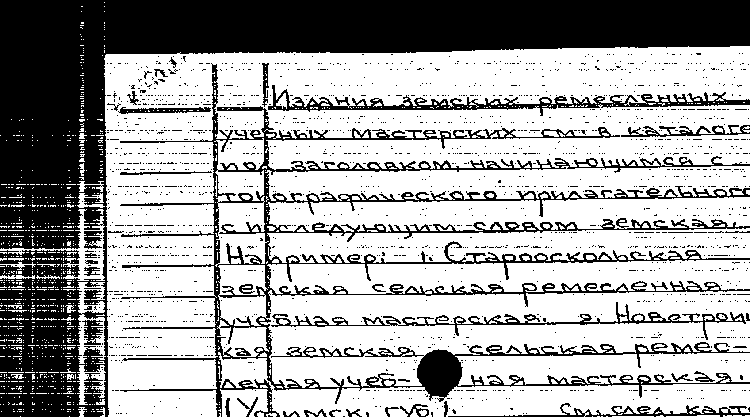 Издания земских ремесленных
учебных мастерских см. в каталоге
под заголовком, начинающимся с
топографического прилагательного
с последующим словом земская.
Например: 1. Старооскольская
земская сельская ремесленная
учебная мастерская. 2. Новотроиц
кая земская сельская ремес-
ленная учеб- ная мастерская.
(Уфимск. губ.). См. след. карт